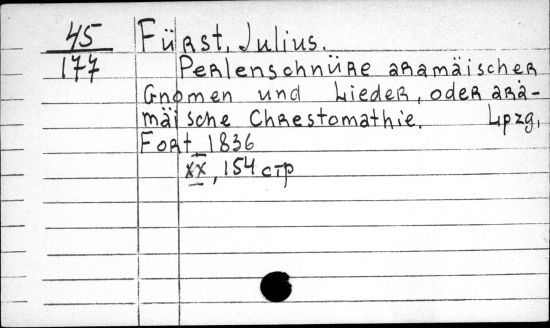 45
177
Fürst, Julius.
Perlenschnüre aramäischer
Gnomen und Lieder, oder ara-
mäische Chrestomathie. Lpzg,
Fort 1836
XX, 154 стр